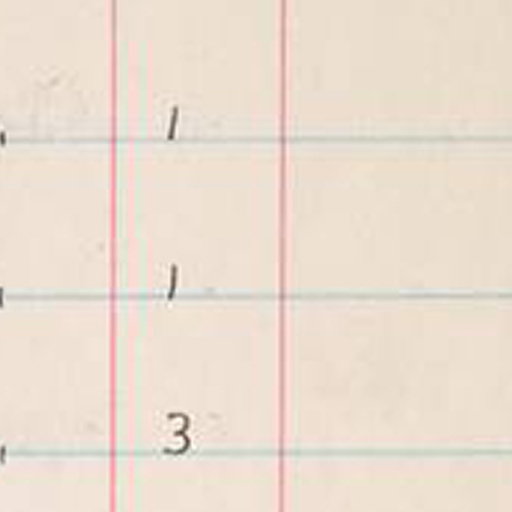 1
1
3